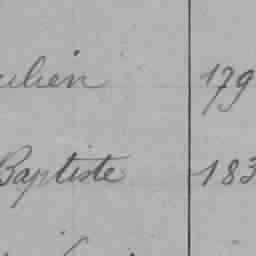 ulien 179
Baptiste 183